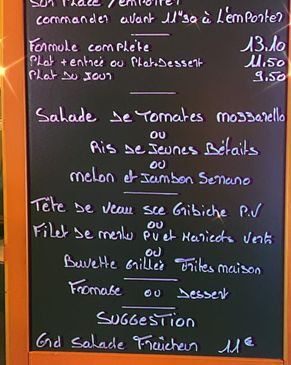 Sur Place / emporter
commander avant 11h30 à L'emporter
Formule complète 13.10
Plat + entrée ou Plat Dessert 11.50
Plat Du Jour 9.50
Salade De Tomates mozzarella
ou
Ris de Jeunes
ou
melon et Jambon Serrano
Tête De veau sce Gribiche P.V
ou
Filet De merlu PV et Haricots Verts
ou
Bavette Grillée Frites maison
Fromage ou Dessert
SUGGESTION
Grd Salade Fraicheur 11€